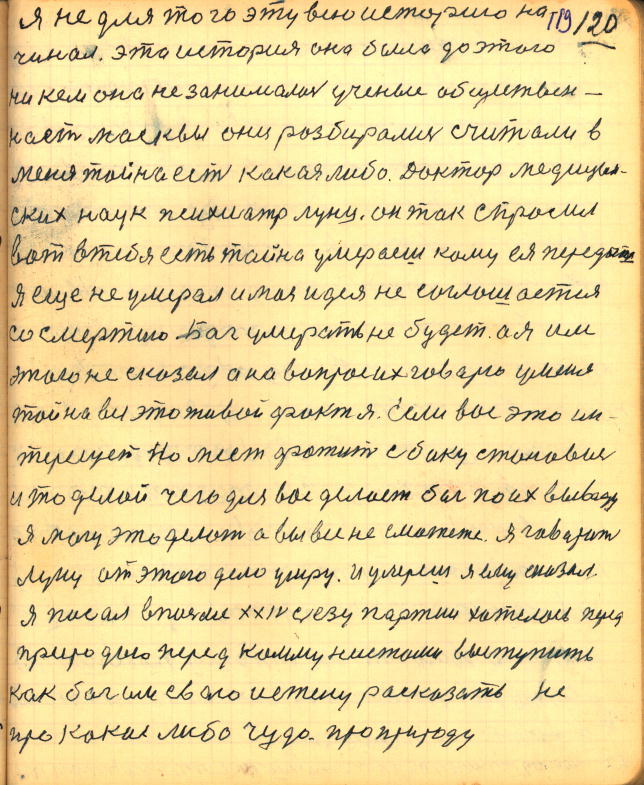 Я не для того эту всю историю на ПГ9/120
чинал. эта история она была до этого
ни кем она не занималас ученые обществен-
наст москвы они розбиралис считали в
меня тойна ест какая либо. Доктор медицын-
ских наук психиатр лунц. он так спросил
вот в тебя есть тайна умераеш кому ея передаш
я еще не умерал и моя идея не соглошается
со смертию Бог умерать не будет. а я им
этого не сказал а на вопрос их говарю уменя
тойна вы это живой факт я. Если вас это ин-
тересует по мест фотит с боку становис
и то делой чего для вас делает баг по их выводу
я могу это делат а вы все не сможете. Я говарит
лунц от этого дело умру. и умреш я ему сказал.
я посал в поезде XXIV сезу партии хотелось перед
природою перед коммунистами выступить
как богом своаю истену расказать не
про какое либо чудо. про природу